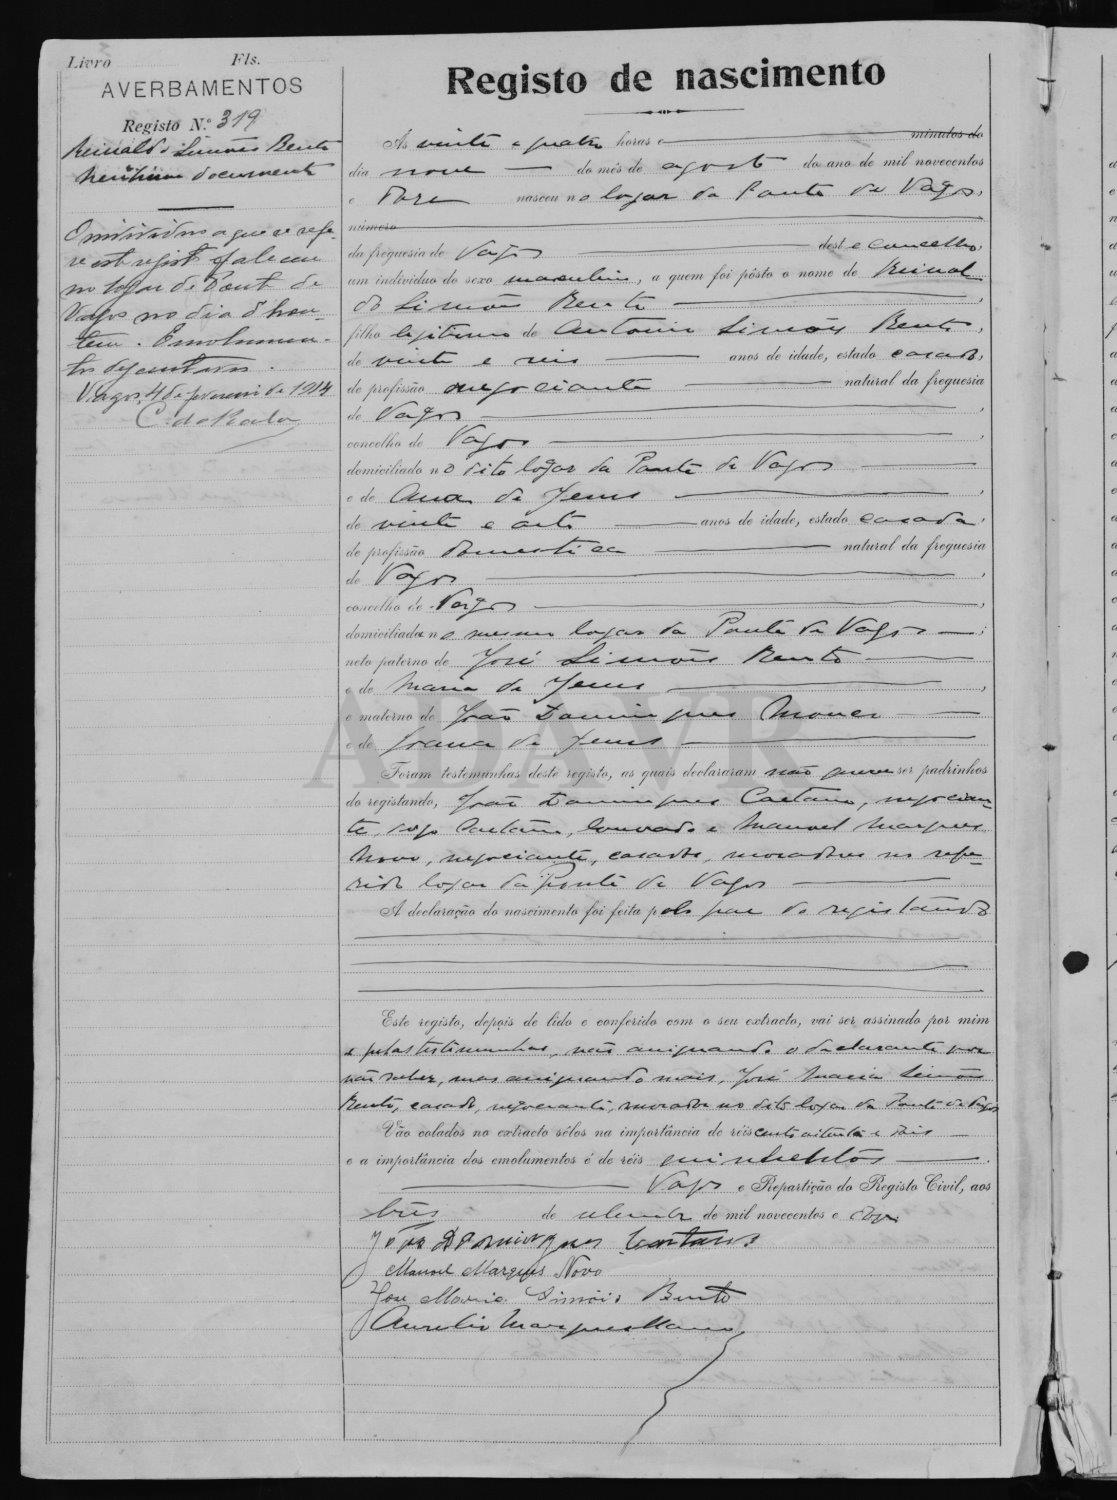 Livro Fls.
AVERBAMENTOS
Registo N.º 319
Reinaldo Simões Bento
Nenhum documento
O individuo a que se refe-
re este registo faleceu
no logar de Ponte de
Vagos no dia d'hon-
tem. Emolumen-
tos
Vagos, 4 de de 1914
C. da
Registo de nascimento
Às vinte e quatro horas e minutos do
dia nove do mês de agosto do ano de mil novecentos
e doze nasceu no logar da Ponte de Vagos,
número
da freguesia de Vagos deste concelho,
um indivíduo do sexo masculino, a quem foi pôsto o nome de Reinal
do Simões Bento,
filho legitimo de Antonio Simões Bento,
de vinte e seis anos de idade, estado casado,
de profissão negociante natural da freguesia
de Vagos,
concelho de Vagos,
domiciliado no dito logar da Ponte de Vagos
e de Ana de Jesus,
de vinte e sete anos de idade, estado casada,
de profissão domestica natural da freguesia
de Vagos,
concelho de Vagos,
domiciliada no mesmo logar da Ponte de Vagos;
neto paterno de José Simões Bento
e de Maria de Jesus,
e materno de João Domingues
e de Joana de Jesus
Foram testemunhas deste registo, as quais declararam não querer ser padrinhos
do registando, João Domingues Caetano, negocian-
te, e Manuel Marques
Novo, negociante, casados, moradores no refe-
rido logar da Ponte de Vagos
A declaração do nascimento foi feita pelo pae do registando
Este registo, depois de lido e conferido com o seu extracto, vai ser assinado por mim
e pelas testimunhas, não assignando o declarante por
não saber, mas assignando mais, José Maria Simões
Bento, casado, negociante, morador no dito logar da Ponte de Vagos
Vão colados no extracto sêlos na importância de réis cento oitenta e dois
e a importância dos emolumentos é de réis quinhentos.
Vagos e Repartição do Registo Civil, aos
três de setembro de mil novecentos e doze
João Domingues Caetano
Manuel Marques Novo
José Maria Simões Bento
Aurelio Marques Mano
ADAVR